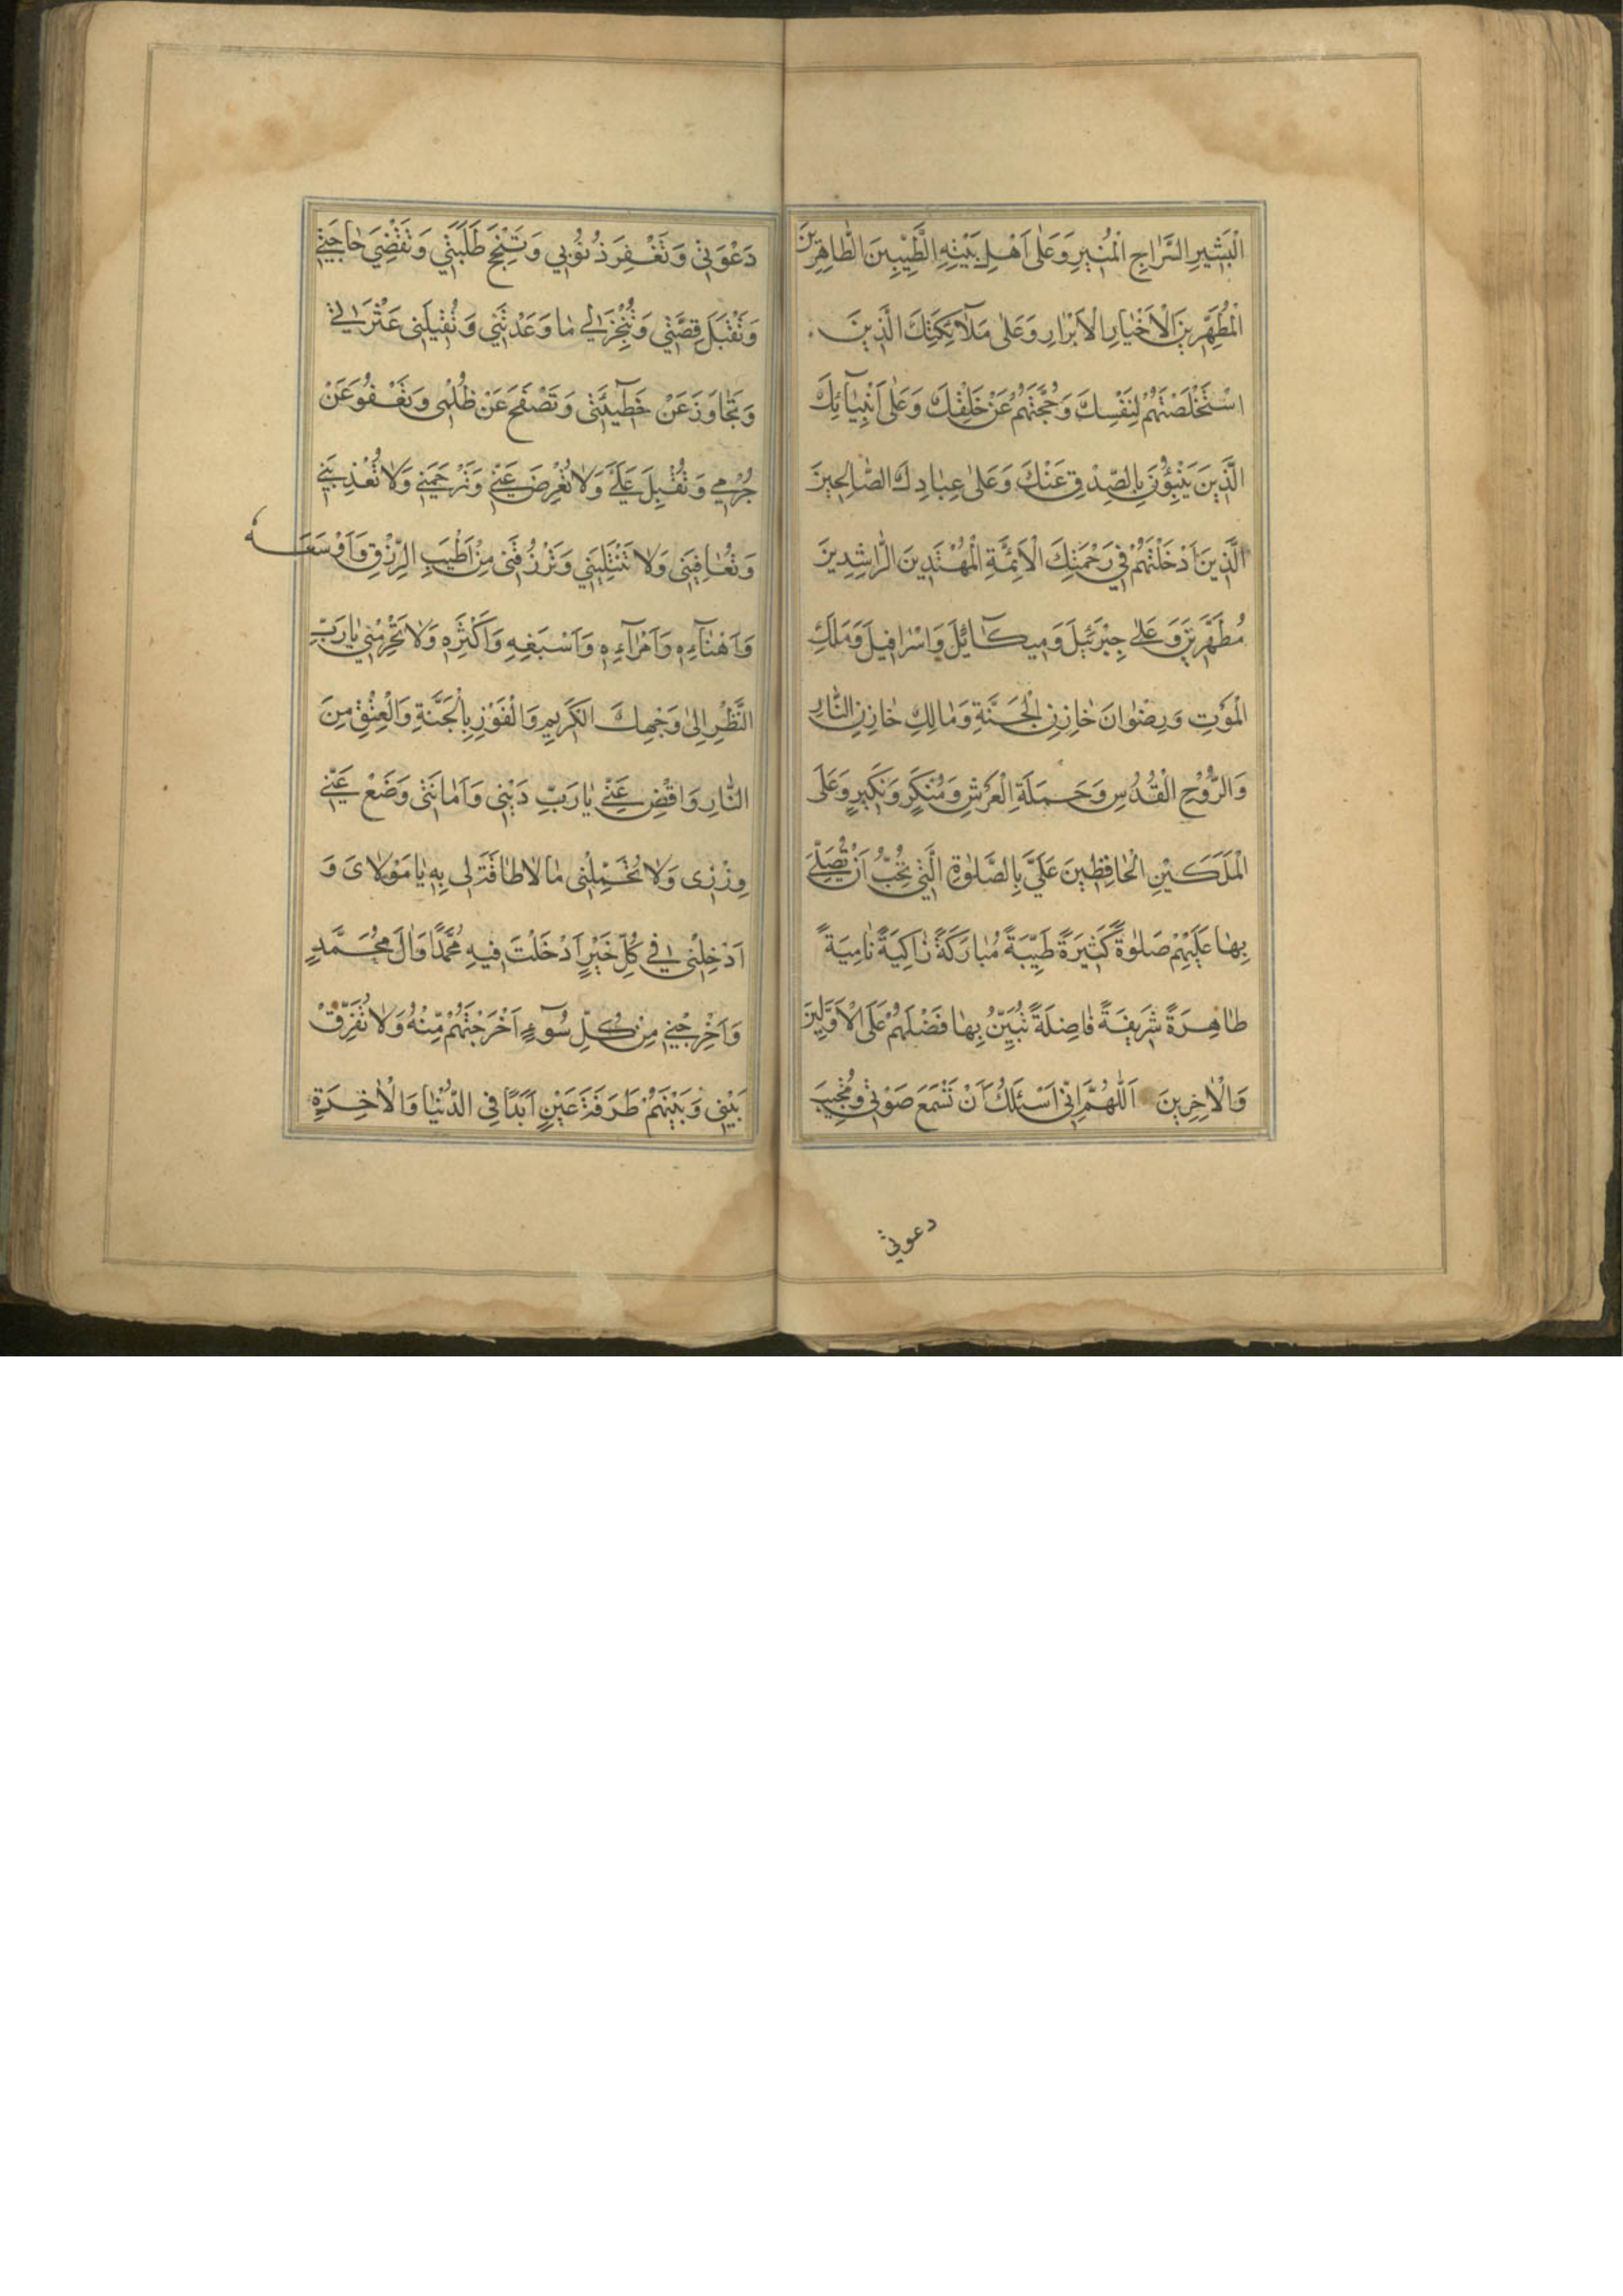 الْبَشِيرِ السِّرَاجِ الْمُنِيرِ وَعَلٰى اَهْلِ بَيْتِهِ الطَّيِّبِينَ الطَّاهِرِينَ
الْمُطَهَّرِينَ الْاَخْيَارِ الْاَبْرَارِ وَعَلٰى مَلٰٓائِكَتِكَ الَّذِينَ
اسْتَخْلَصْتَهُمْ لِنَفْسِكَ وَحَجَبْتَهُمْ عَنْ خَلْقِكَ وَعَلٰى اَنْبِيَآئِكَ
الَّذِينَ يُنْبِؤُنَ بِالصِّدْقِ عَنْكَ وَعَلٰى عِبَادِكَ الصَّالِحِينَ
الَّذِينَ اَدْخَلْتَهُمْ فِي رَحْمَتِكَ الْاَئِمَّةِ الْمُهْتَدِينَ الرَّاشِدِينَ
مُطَهَّرِينَ وَعَلٰى جِبْرَئِيلَ وَمِيكَآئِيلَ وَاِسْرَافِيلَ وَمَلَكِ
الْمَوْتِ وَرِضْوَانَ خَازِنِ الْجَنَّةِ وَمَالِكِ خَازِنِ النَّارِ
وَالرُّوحِ الْقُدُسِ وَحَمَلَةِ الْعَرْشِ وَمُنْكَرٍ وَنَكِيرٍ وَعَلَى
الْمَلَكَيْنِ الْحَافِظَيْنِ عَلَيَّ بِالصَّلٰوةِ الَّتِي تُحِبُّ اَنْ تُصَلِّيَ
بِهَا عَلَيْهِمْ صَلٰوةً كَثِيرَةً طَيِّبَةً مُبَارَكَةً زَاكِيَةً نَامِيَةً
طَاهِرَةً شَرِيفَةً فَاضِلَةً تُبَيِّنُ بِهَا فَضْلَهُمْ عَلَى الْاَوَّلِينَ
وَالْاٰخِرِينَ اَللّٰهُمَّ اِنِّي اَسْئَلُكَ اَنْ تَسْمَعَ صَوْتِي وَتُجِيبَ
دعوتي
دَعْوَتِي وَتَغْفِرَ ذُنُوبِي وَتُنْجِحَ طَلِبَتِي وَتَقْضِيَ حَاجَتِي
وَتَقْبَلَ قِصَّتِي وَتُنْجِزَ لِي مَا وَعَدْتَنِي وَتُقِيلَنِي عَثْرَاتِي
وَتَجَاوَزَ عَنْ خَطٓيئَتِي وَتَصْفَحَ عَنْ ظُلْمِي وَتَعْفُوَ عَنْ
جُرْمِي وَتُقْبِلَ عَلَيَّ وَلَا تُعْرِضَ عَنِّي وَتَرْحَمَنِي وَلَا تُعَذِّبَنِي
وَتُعَافِيَنِي وَلَا تَبْتَلِيَنِي وَتَرْزُقَنِي مِنْ اَطْيَبِ الرِّزْقِ وَاَوْسَعِهِ
وَاَهْنَآءِهِ وَاَمْرَآءِهِ وَاَسْبَغِهِ وَاَكْثَرِهِ وَلَا تَحْرِمْنِي يَا رَبِّ
النَّظَرِ اِلٰى وَجْهِكَ الكَرِيمِ وَالْفَوْزِ بِالْجَنَّةِ وَالْعِتْقِ مِنَ
النَّارِ وَاقْضِ عَنِّي يَا رَبِّ دَيْنِي وَاَمَانَتِي وَضَعْ عَنِّي
وِزْرِى وَلَا تُحَمِّلْنِي مَا لَا طَاقَةَ لِي بِهِ يَا مَوْلَاىَ وَ
اَدْخِلْنِي فِي كُلِّ خَيْرٍ اَدْخَلْتَ فِيهِ مُحَمَّدًا وَاٰلَ مُحَمَّدٍ
وَاَخْرِجْنِي مِنْ كُلِّ سُوٓءٍ اَخْرَجْتَهُمْ مِنْهُ وَلَا تُفَرِّقْ
بَيْنِي وَبَيْنَهُمْ طَرَفَةَ عَيْنٍ اَبَدًا فِى الدُّنْيَا وَالْاٰخِرَةِ